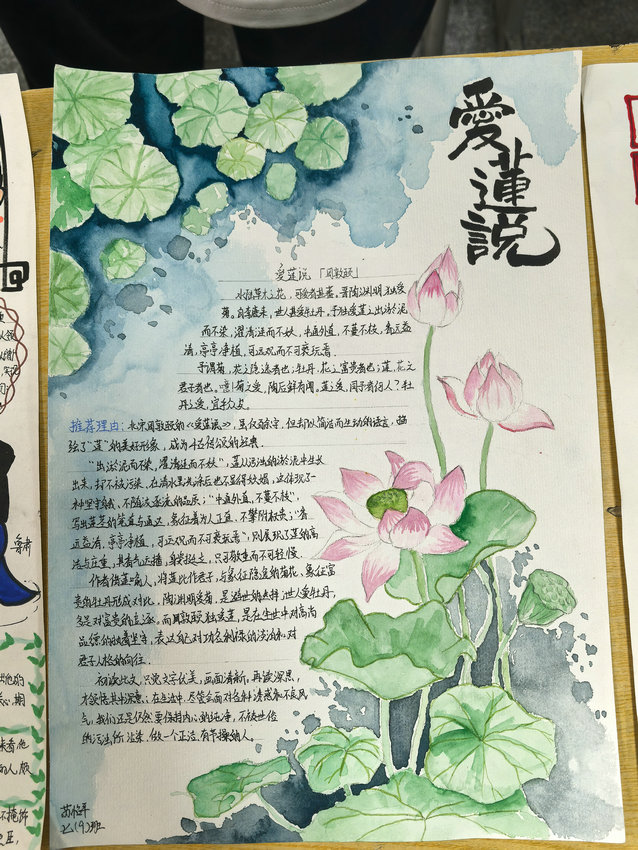 愛蓮説
爱莲说「周敦颐」
水陆草木之花，可爱者甚蕃。晋陶渊明独爱
菊。自李唐来，世人甚爱牡丹。予独爱莲之出淤泥
而不染，濯清涟而不妖，中通外直，不蔓不枝，香远益
清，亭亭净植，可远观而不可亵玩焉。
予谓菊，花之隐逸者也；牡丹，花之富贵者也；莲，花之
君子者也。噫！菊之爱，陶后鲜有闻。莲之爱，同予者何人？牡
丹之爱，宜乎众矣。
推荐理由：北宋周敦颐的《爱莲说》，虽仅百余字，但却以简洁而生动的语言，描
绘了"莲"的美好形象，成为千古传诵的经典
"出淤泥而不染，濯清涟而不妖"，莲从污浊的淤泥中生长
出来，却不被污染，在清水里洗涤后也不显得妖媚，这体现了一
种坚守自我，不随波逐流的品质；"中通外直，不蔓不枝"，
写出莲茎的笔直与通达，象征着为人正直，不攀附权贵；"香
远益清，亭亭净植，可远观而不可亵玩焉"，则表现了莲的高
洁与庄重，其香气远播，身姿挺立，只可敬重而不可轻慢
作者借莲喻人，将莲比作君子，与象征隐逸的菊花，象征富
贵的牡丹形成对比，陶渊明爱菊，是避世的选择，世人爱牡丹，
多是对富贵的追逐，而周敦颐独爱莲，是在尘世中对高尚
品德的执着坚守，表达自己对功名利禄的淡泊和对
君子人格的向往。
初读此文，只觉文字优美，画面清新，再读深思，
才领悟其中深意：在生活中，尽管会面对各种诱惑和不良风
气，我们还是仍然要保持内心的纯净，不被世俗
的污浊所沾染，做一个正洁、有节操的人。
苏
七(9)班